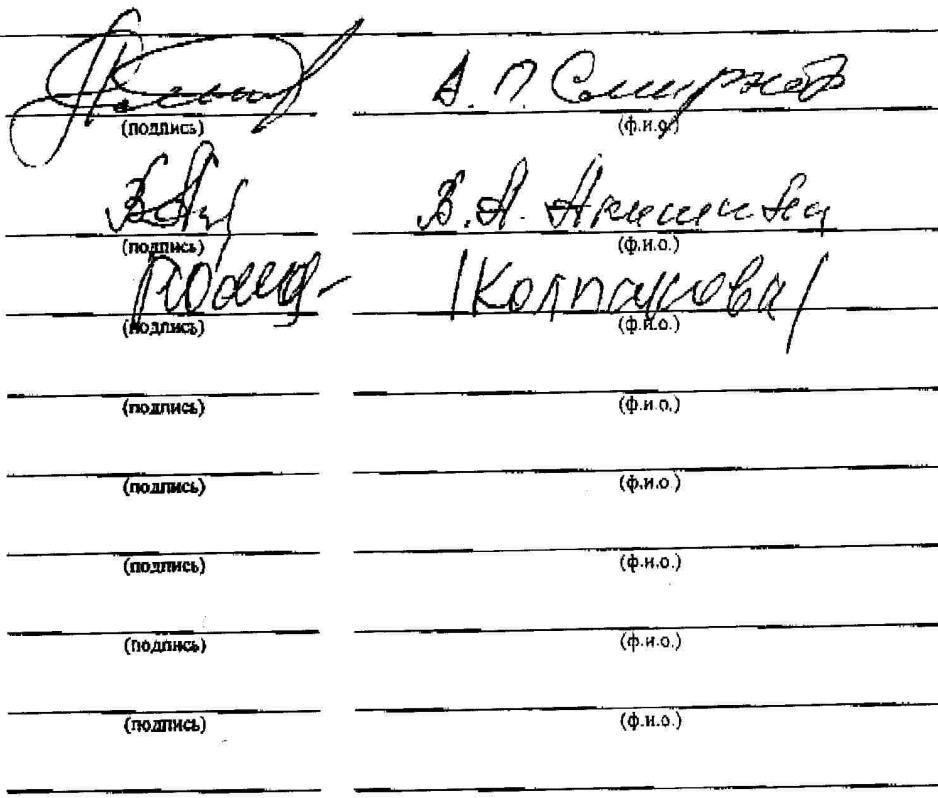 А. П. Смирнов
(подпись) (ф.и.о.)
В. А.
(подпись) (ф.и.о.)
/Колпакова/
(подпись) (ф.и.о.)
(подпись) (ф.и.о.)
(подпись) (ф.и.о.)
(подпись) (ф.и.о.)
(подпись) (ф.и.о.)
(подпись) (ф.и.о.)